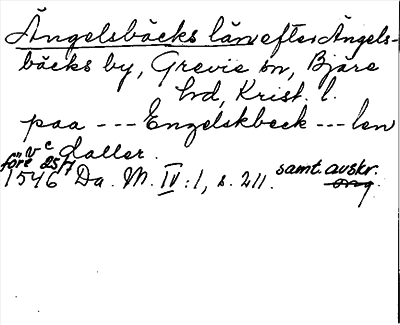 Ängelsbäcks län efter Ängels-
bäcks by, Grevie sn, Bjäre
hd, Krist. l.
paa --- Engelskbeck --- len
vc daller.
före 25/7
1546 Da. M. IV:1, s. 211. samt. avskr.